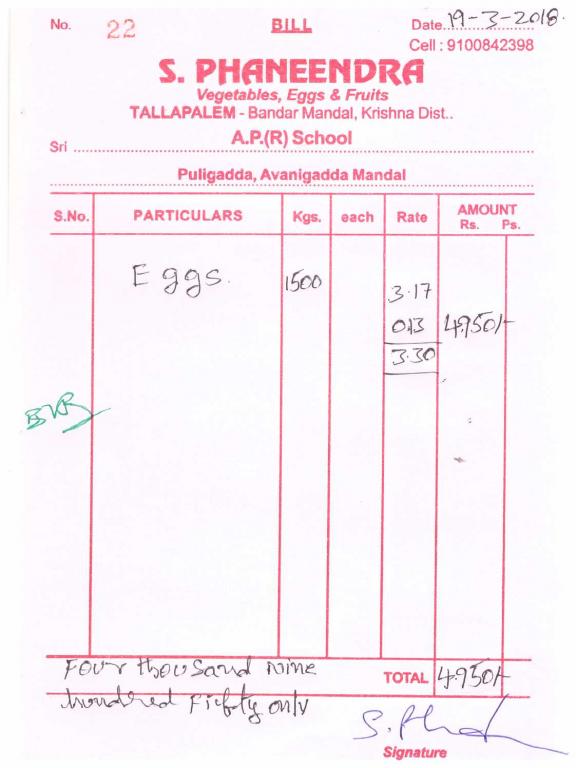 No. 22 BILL Date. 19-3-2018.
Cell : 9100842398
S. PHANEENDRA
Vegetables, Eggs & Fruits
TALLAPALEM - Bandar Mandal, Krishna Dist..
Sri A.P.(R) School
Puligadda, Avanigadda Mandal
S.No. PARTICULARS Kgs. each Rate AMOUNT
Rs. Ps.
Eggs. 1500 3.17
0.13 4950/-
3.30
Four thousand nine
TOTAL 4950/-
hundred Fiefty only
Signature